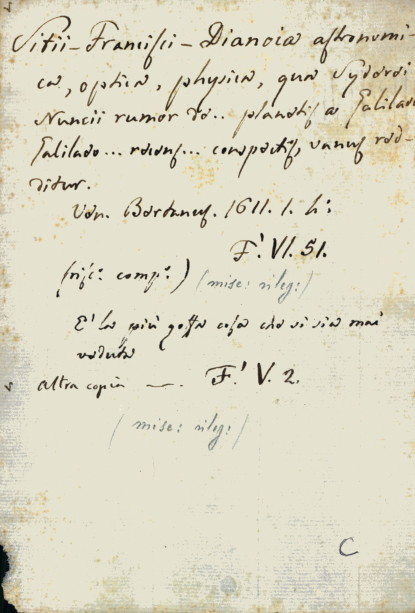 Sitii - Francisci - Dianoia astronomi-
ca, optica, physica, qua Syderei
Nuncii rumor de.. planetis a Galilaeo
Galilaeo... recens... conspectis, vanus red-
ditur.
Ven. Bertanus. 1611. 1. 4°:
F.' VI. 51.
comp.°) (misc: rileg:)
E' la più goffa cosa che si sia mai
veduta
altra copia —. F.' V. 2.
(misc: rileg:)
C